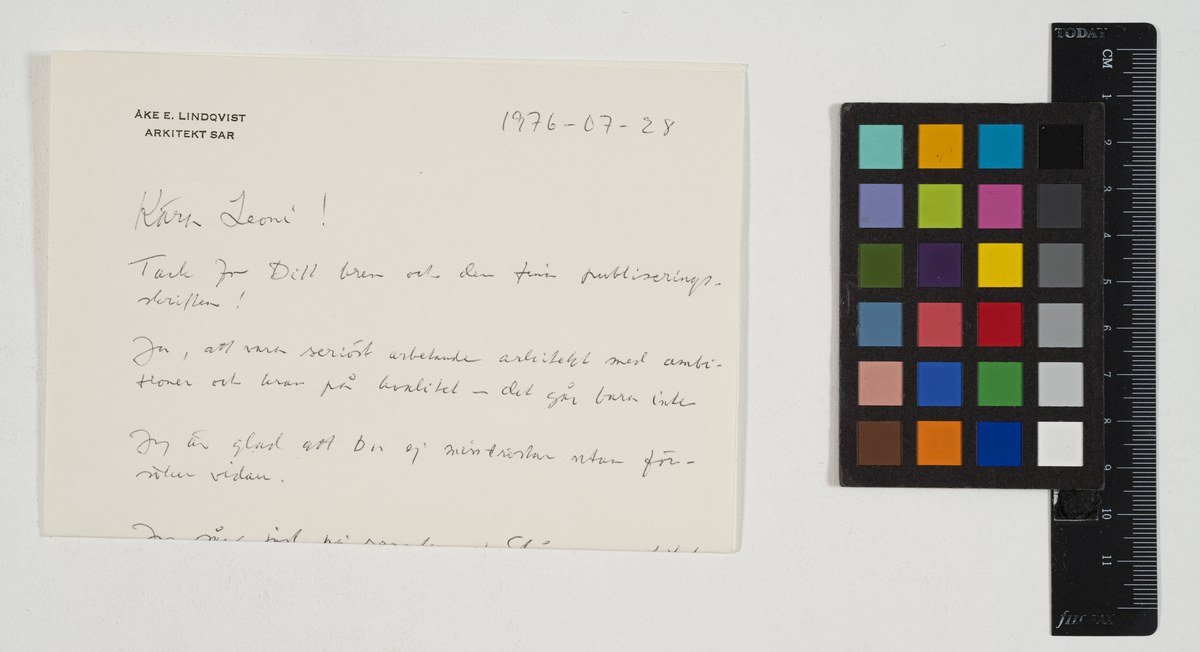 ÅKE E. LINDQVIST
ARKITEKT SAR
1976-07-28
Kära Leoni!
Tack för Ditt brev och den fina publiserings-
skriften!
Ja, att vara seriöst arbetande arkitekt med ambi-
tioner och krav på kvalitet – det går bara inte
Jag är glad att Du ej misströstar utan för-
söker vidare.
TODAY
CM
1
2
3
4
5
6
7
8
9
10
11
filofax